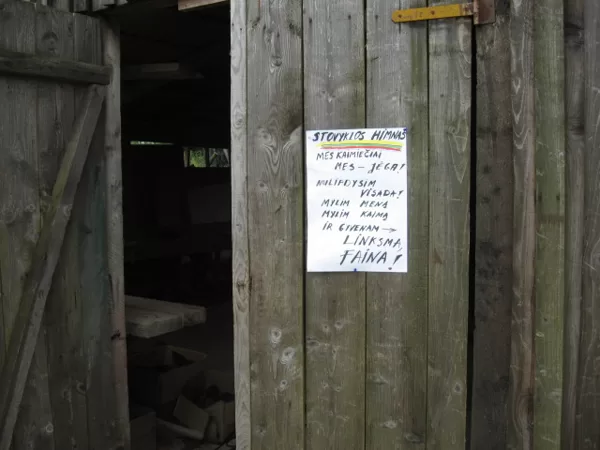 STOVYKLOS HIMNAS
MES KAIMIEČIAI
MES – JĖGA!
NULIPDYSIM
VISADA!
MYLIM MENĄ
MYLIM KAIMĄ
IR GYVENAM →
LINKSMA,
FAINA!